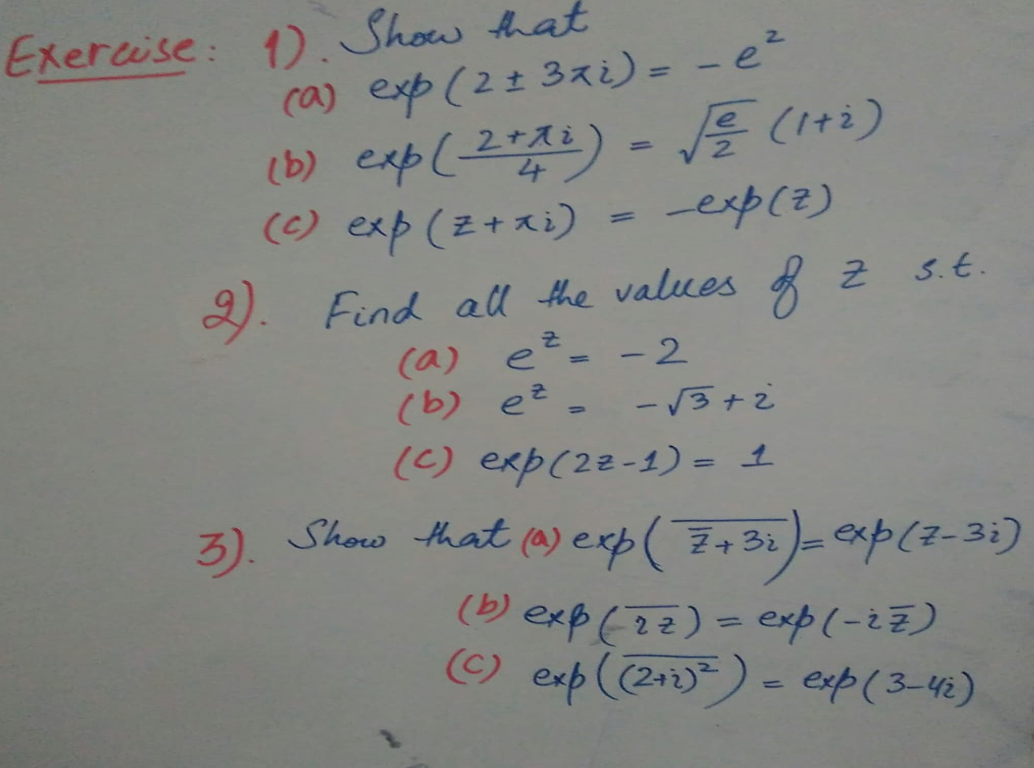 Exercise: 1). Show that
(a) exp(2 ± 3πi) = - e²
(b) exp(\frac{2+πi}{4}) = \sqrt{\frac{e}{2}} (1+i)
(c) exp(z+πi) = -exp(z)
2). Find all the values of z s.t.
(a) e^z = -2
(b) e^z = -√3+i
(c) exp(2z-1) = 1
3). Show that (a) exp(\overline{\bar{z}+3i}) = exp(z-3i)
(b) exp(\overline{iz}) = exp(-i\bar{z})
(c) exp(\overline{(2+i)²}) = exp(3-4i)